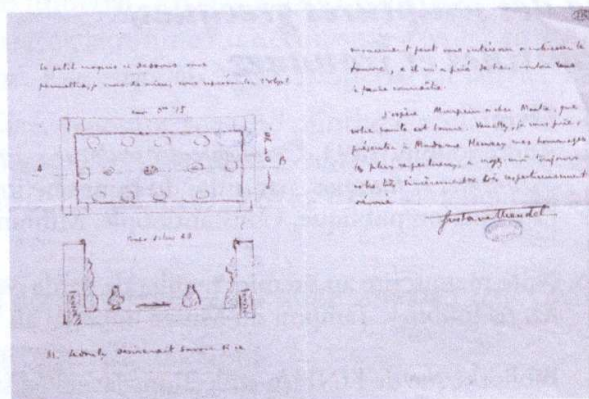 Le petit croquis ci dessous vous
permettra, je crois de mieux vous représenter l'objet
A
B
Coupe selon AB
M. Ledoulx désirerait savoir si ce
monument peut vous intéresser
trouvé, et il m'a prié de
à
J'espère, Monsieur et cher Maître, que
votre santé est bonne. Veuillez, je vous prie,
présenter à Madame Heuzey mes hommages
les plus respectueux, et croyez moi toujours
votre très sincèrement et très respectueusement
dévoué
Gustave Mendel